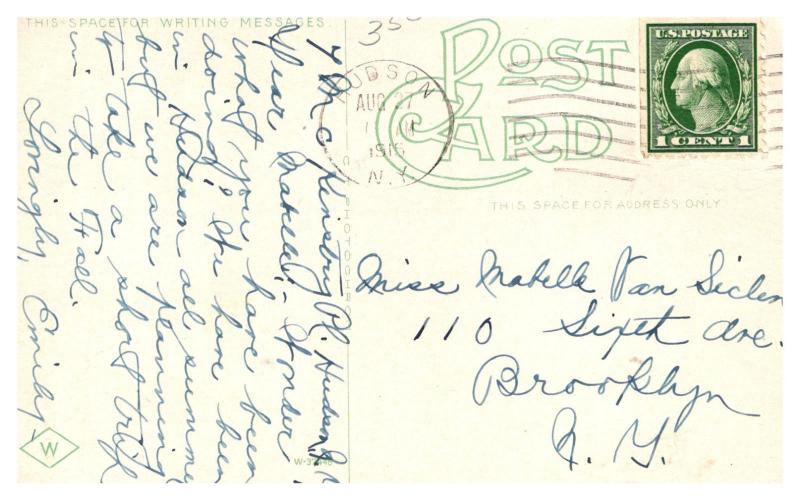 THIS SPACE FOR WRITING MESSAGES.
7 Mc Kinstry Pl. Hudson N.Y.
Dear Mabelle:- Wonder
what you have been
doing. We have been
in Hudson all summer
but we are planning
to take a short trip
in the Fall.
Lovingly, Emily.
W
W-37448
PHOTOCHROM
350
POST
CARD
HUDSON
AUG 27
AM
1915
N.Y.
U.S. POSTAGE
1 CENT 1
THIS SPACE FOR ADDRESS ONLY
Miss Mabelle Van Siclen
110 Sixth Ave.
Brooklyn
N. Y.